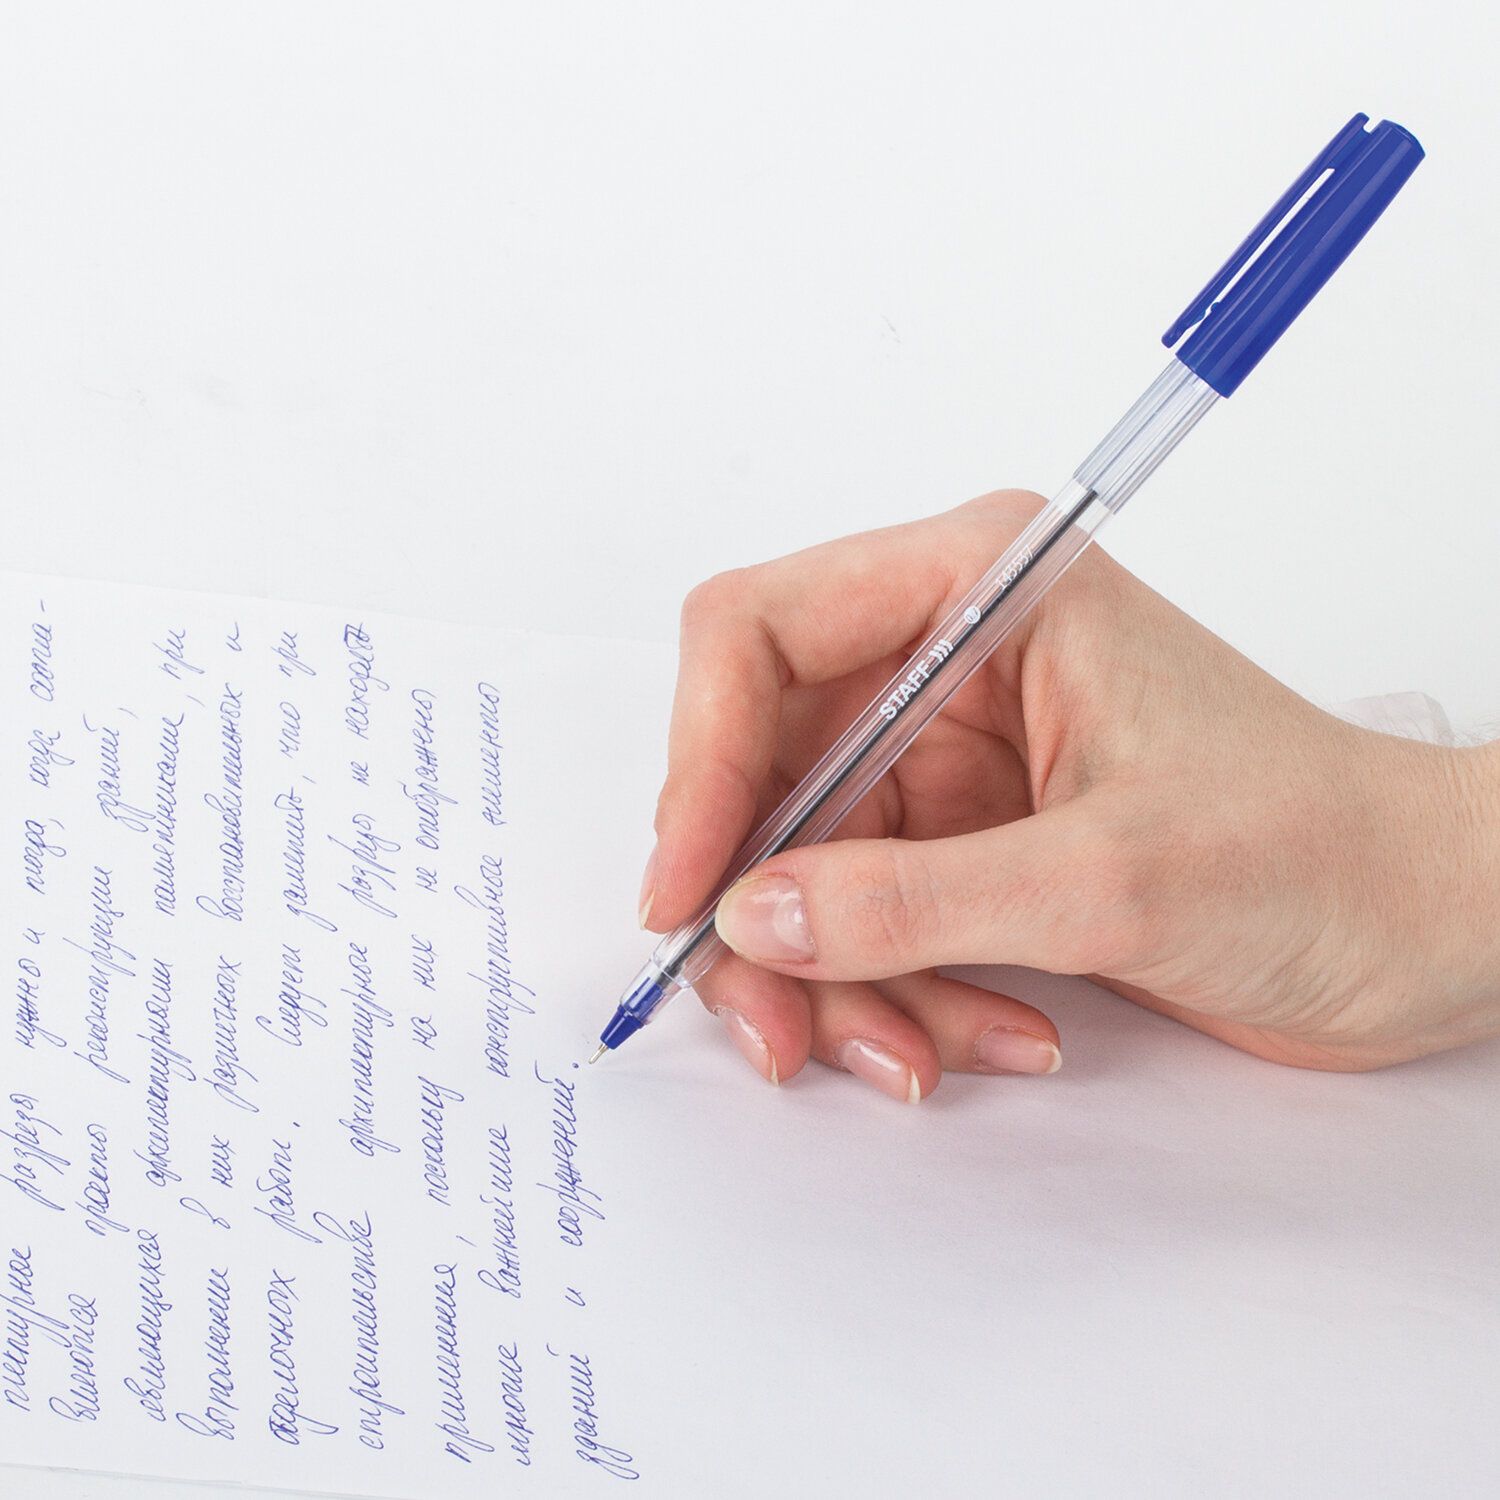 тектурное разрезы нужно и тогда, когда соста-
вляются проекты реконструкции зданий,
являющихся архитектурными памятниками, при
выполнении в них различных восстановительных и
отделочных работ. Следует заметить, что при
строительстве архитектурные разрезы не находят
применения, поскольку на них не отображены
многие важнейшие конструктивные элементы
зданий и сооружений.
STAFF 0,7 143537